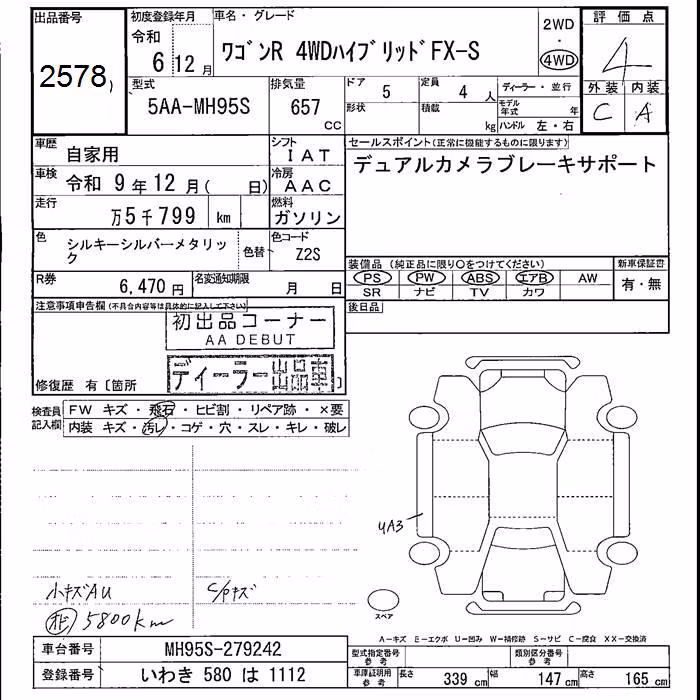 出品番号 初度登録年月 車名・グレード 2WD・4WD 評価点
2578 令和 6 12月 ワゴンR 4WDハイブリッドFX-S 4
型式 排気量 ドア 5 定員 4人 ディーラー・並行 外装 内装
5AA-MH95S 657 cc 形状 積載 kg モデル年式 年 C A
ハンドル 左・右
車歴 自家用 シフト IAT セールスポイント(正常に機能するものに限ります)
車検 令和 9年12月( 日) 冷房 AAC デュアルカメラブレーキサポート
走行 万5千799 km 燃料 ガソリン
色 シルキーシルバーメタリック 色替 色コード Z2S
装備品 (純正品に限り○をつけてください) 新車保証書
R券 6,470円 名変通知期限 月 日 PS PW ABS エアB AW 有・無
SR ナビ TV カワ
注意事項申告欄(不具合内容等は具体的に記入して下さい) 後日品
初出品コーナー
AA DEBUT
ディーラー出品車
修復歴 有〔箇所 〕
検査員記入欄 FW キズ・飛石・ヒビ割・リペア跡・×要
内装 キズ・汚レ・コゲ・穴・スレ・キレ・破レ
UA3
小キズAU C/Pキズ
5800km
スペア
A－キズ E－エクボ U－凹み W－補修跡 S－サビ C－腐食 XX－交換済
車台番号 MH95S-279242 型式指定番号 参考 類別区分番号 参考
登録番号 いわき 580 は 1112 車庫証明用 参考 長さ 339 cm 幅 147 cm 高さ 165 cm